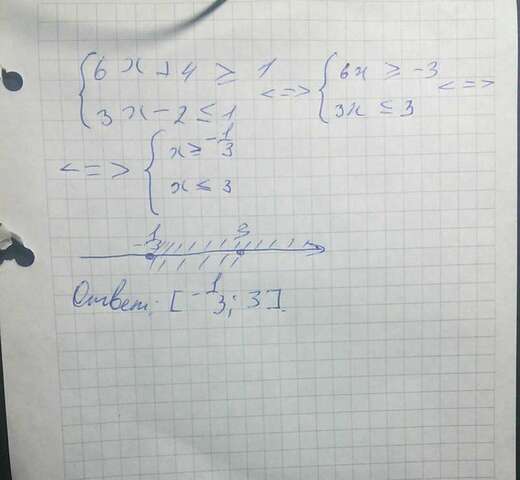 { 6x + 4 ≥ 1 <=> { 6x ≥ -3 <=>
3x - 2 ≤ 1 3x ≤ 3
<=> { x ≥ -1/3
x ≤ 3
-1/3 3
Ответ: [-1/3; 3].